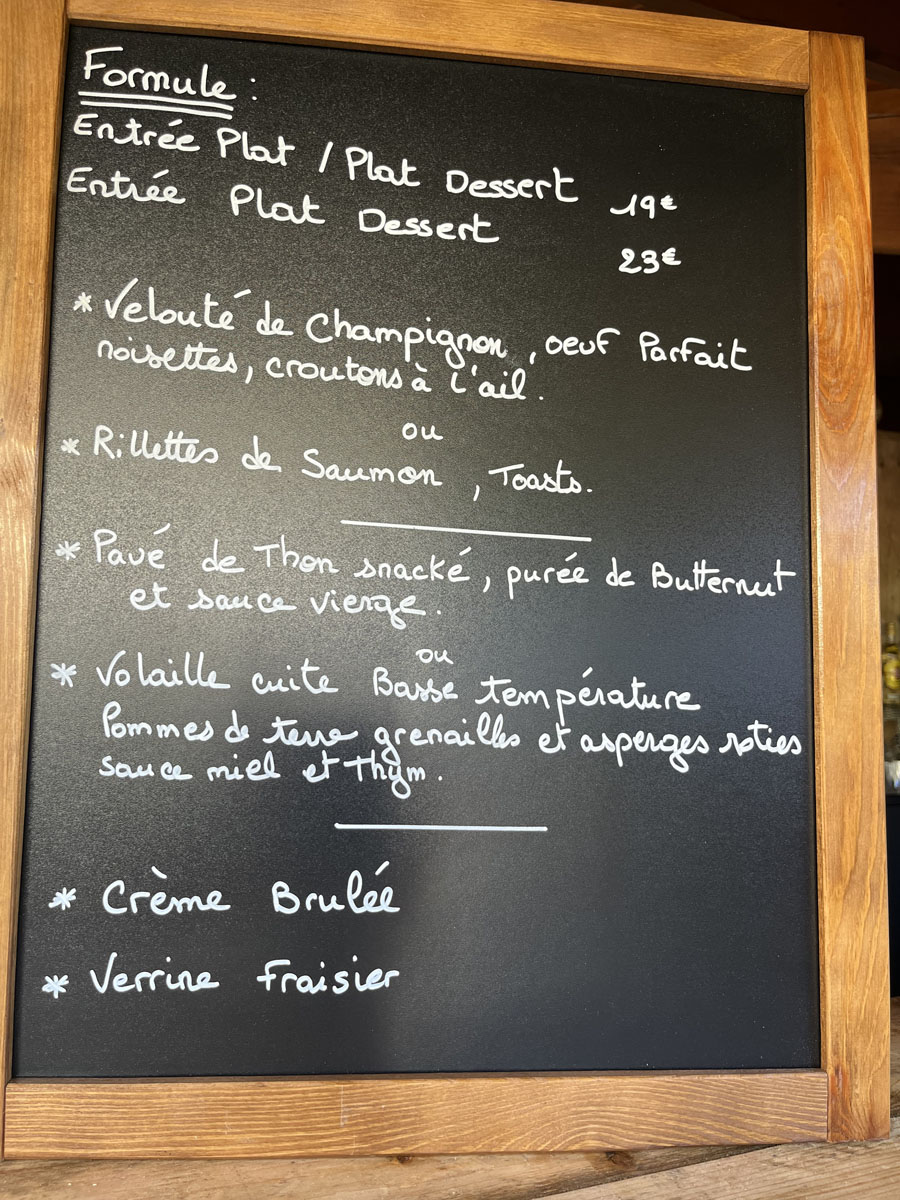 Formule :
Entrée Plat / Plat Dessert 19€
Entrée Plat Dessert 23€
* Velouté de Champignon, oeuf Parfait
noisettes, croutons à l'ail.
ou
* Rillettes de Saumon, Toasts.
* Pavé de Thon snacké, purée de Butternut
et sauce vierge.
ou
* Volaille cuite Basse température
Pommes de terre grenailles et asperges roties
sauce miel et Thym.
* Crème Brulée
* Verrine Fraisier